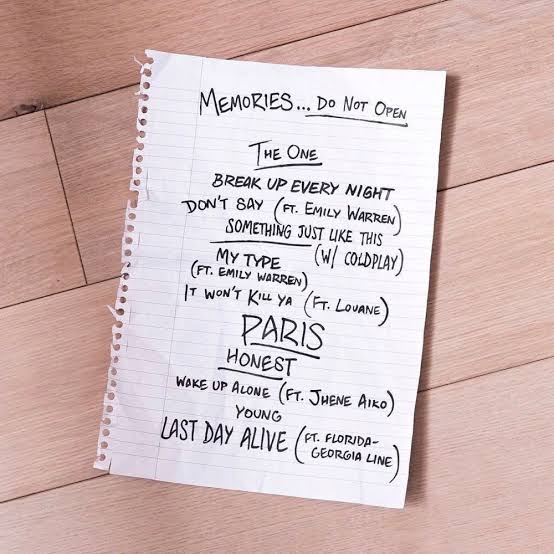 MEMORIES... DO NOT OPEN
THE ONE
BREAK UP EVERY NIGHT
DON'T SAY (FT. EMILY WARREN)
SOMETHING JUST LIKE THIS
(W/ COLDPLAY)
MY TYPE
(FT. EMILY WARREN)
IT WON'T KILL YA (FT. LOUANE)
PARIS
HONEST
WAKE UP ALONE (FT. JHENE AIKO)
YOUNG
LAST DAY ALIVE (FT. FLORIDA-
GEORGIA LINE)